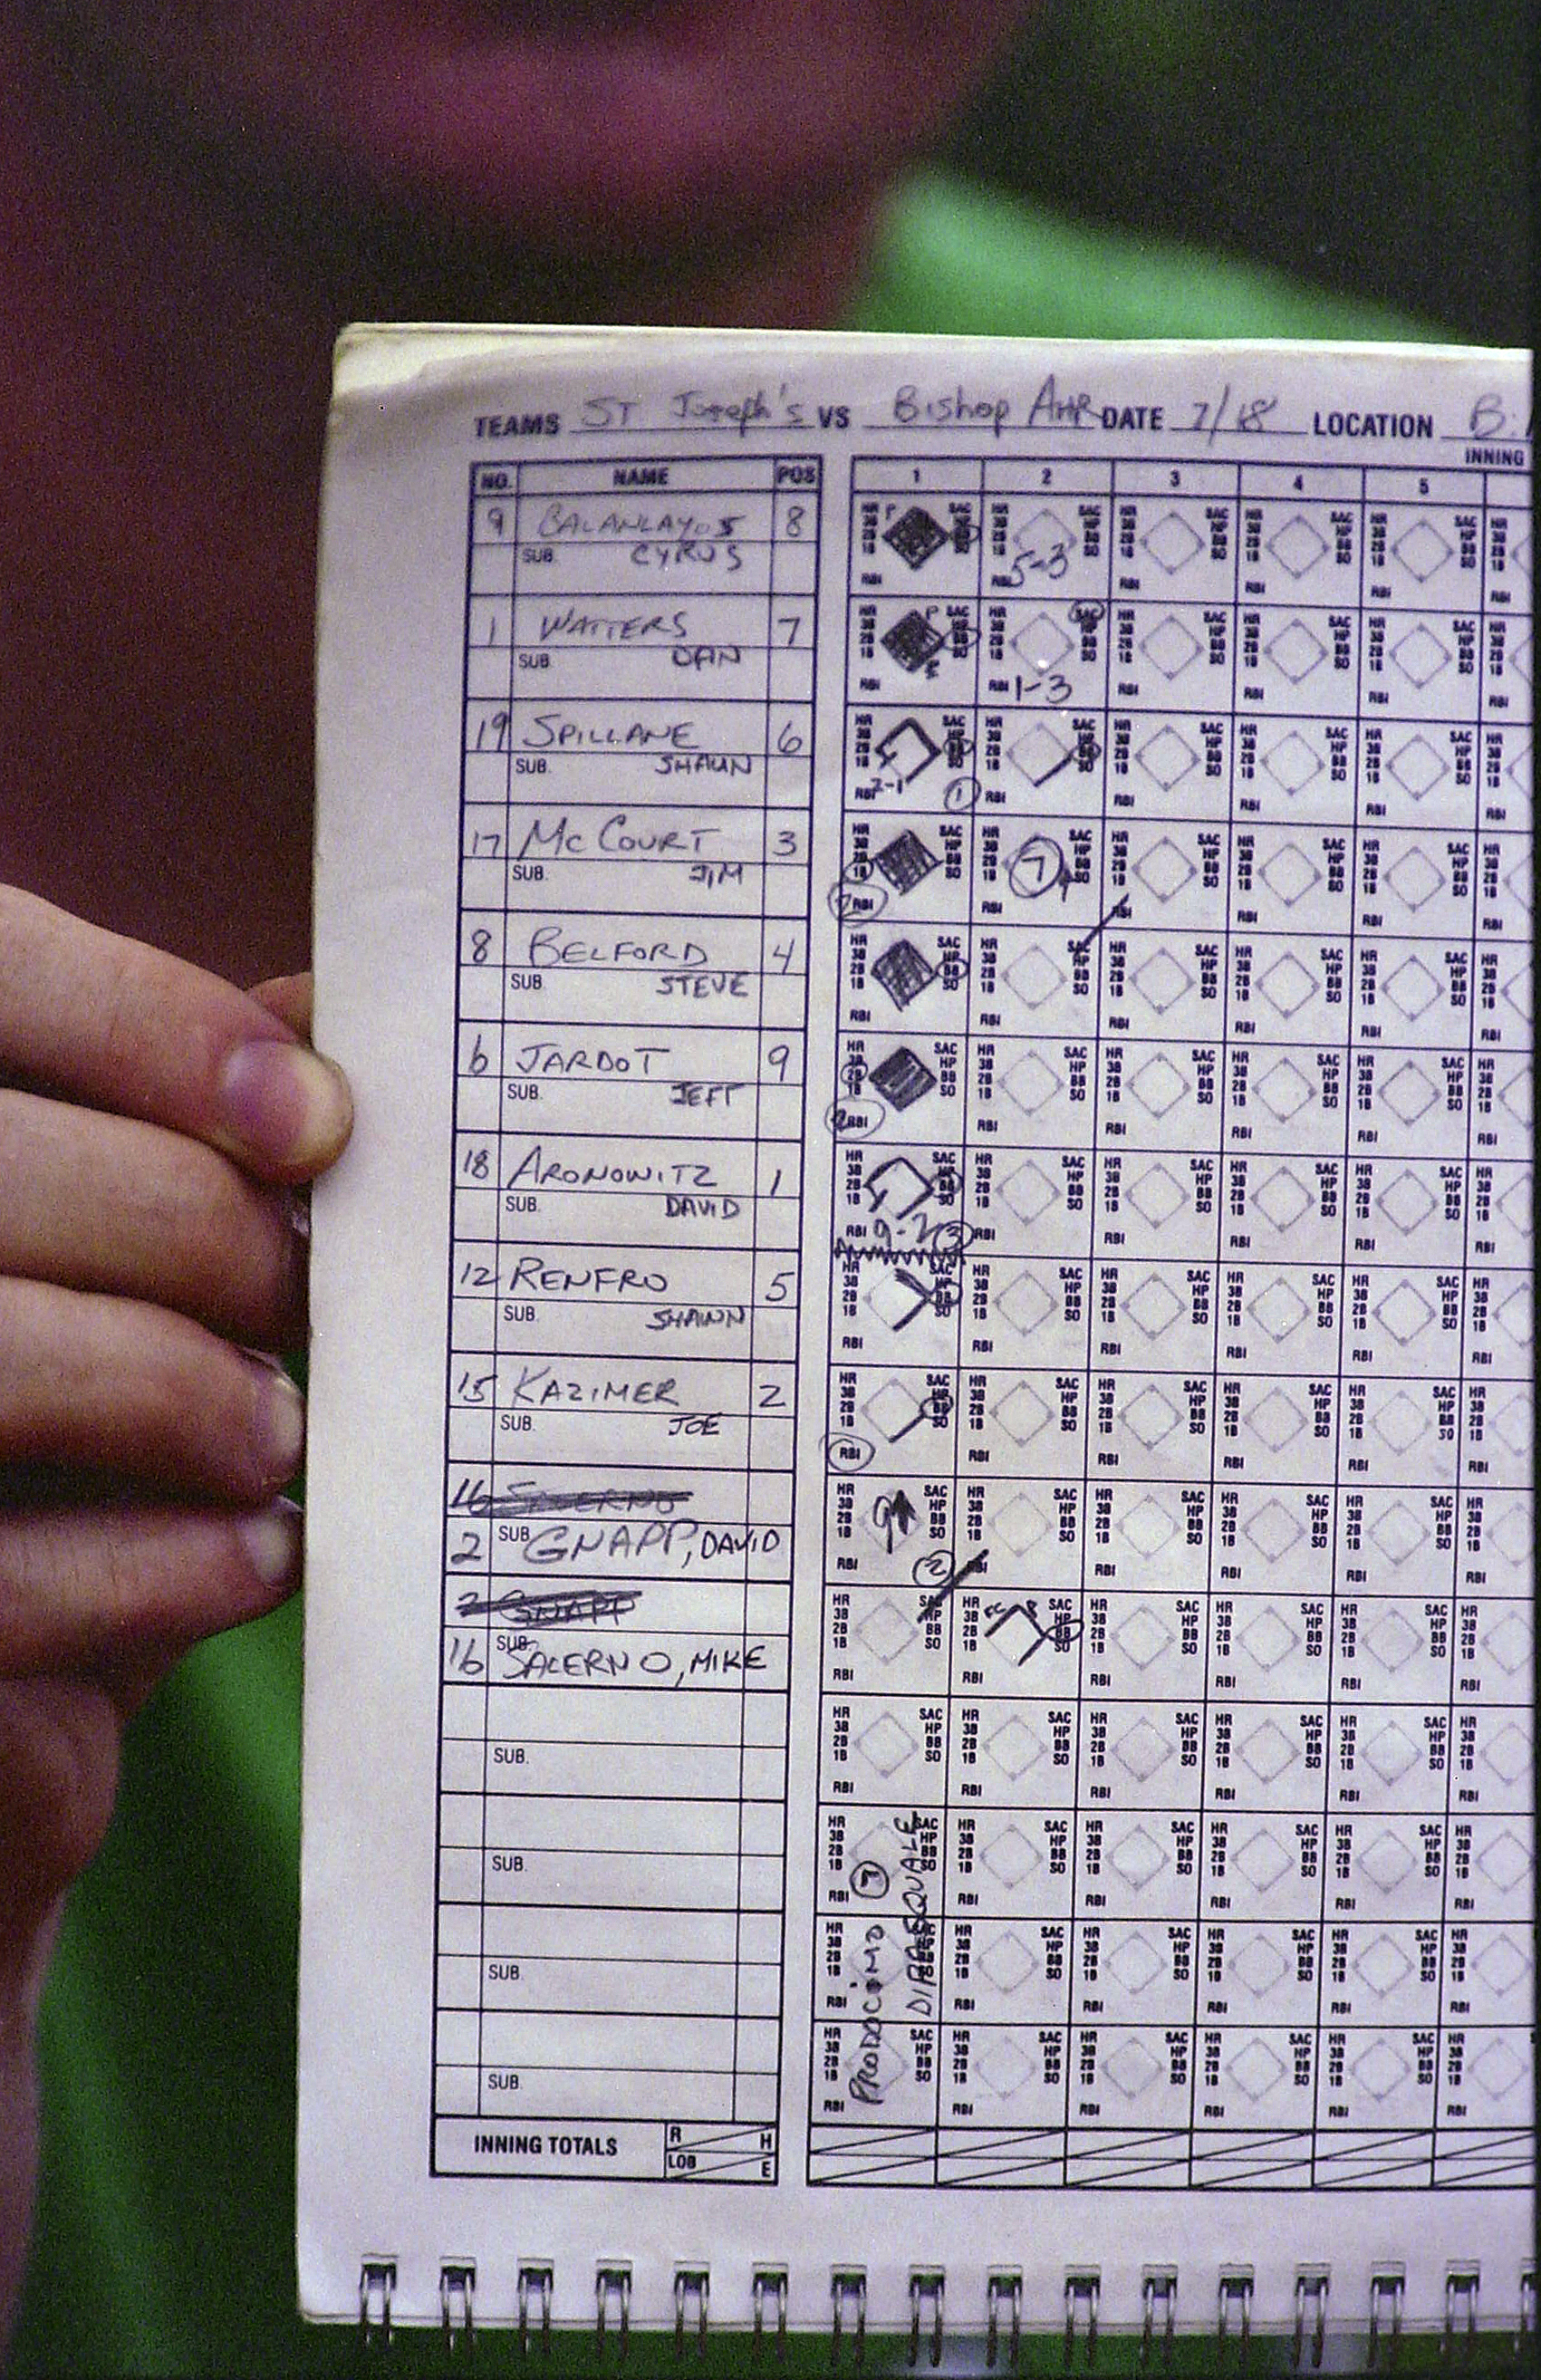 TEAMS ST Joseph's VS Bishop AHR DATE 7/18 LOCATION B
INNING
NO. NAME POS 1 2 3 4 5
9 BALANLAYOS 8
SUB. CYRUS
5-3
1 WATTERS 7
SUB. DAN
1-3
19 SPILLANE 6
SUB. SHAUN
2-1 1
17 McCOURT 3
SUB. JIM
7
8 BELFORD 4
SUB. STEVE
6 JARDOT 9
SUB. JEFF
18 ARONOWITZ 1
SUB. DAVID
9-2 3
12 RENFRO 5
SUB. SHAWN
15 KAZIMER 2
SUB. JOE
16
2 SUB. GNAPP, DAVID
9 2
2 GNAPP
16 SUB. SALERNO, MIKE
SUB.
SUB.
SUB.
SUB.
PRODOCIMO
DIPASQUALE
HR
3B
2B
1B
SAC
HP
BB
SO
RBI
INNING TOTALS R H
LOB E